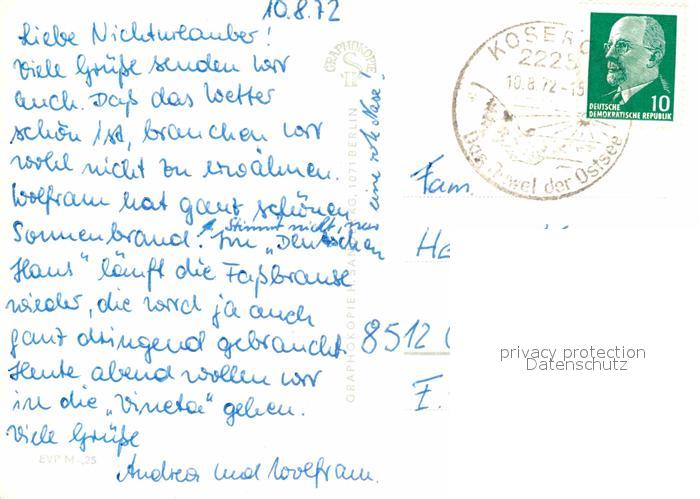 10.8.72
Liebe Nichturlauber!
Viele Grüße senden wir
auch. Daß das Wetter
schön ist, brauchen wir
wohl nicht zu erwähnen.
Wolfram hat ganz schönen
Sonnenbrand! Im „Deutschen
Stimmt nicht, nur
eine rote Nase!
Haus" läuft die Faßbrause
wieder, die wird ja auch
ganz dringend gebraucht.
Heute abend wollen wir
in die „Vineta" gehen.
Viele Grüße
Andrea und Wolfram.
EVP M -,25
GRAPHOKOPIE
GRAPHOKOPIE H. 1071 BERLIN
KOSERO
2225
10.8.72-15
Das Juwel der Ostsee
10
DEUTSCHE
DEMOKRATISCHE REPUBLIK
Fam.
Ha
8512
privacy protection
Datenschutz